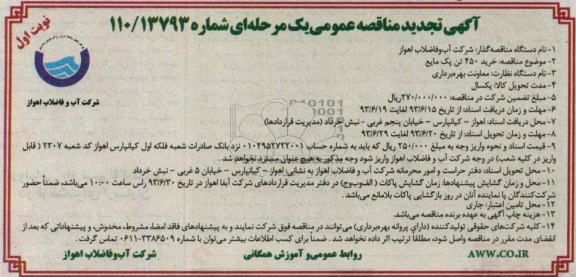 نوبت اول
آگهی تجدید مناقصه عمومی یک مرحله‌ای شماره ۱۱۰/۱۳۷۹۳
شرکت آب و فاضلاب اهواز
۱-نام دستگاه مناقصه‌گذار: شرکت آب‌وفاضلاب اهواز
۲-موضوع مناقصه: خرید ۴۵۰ تن پک مایع
۳-نام دستگاه نظارت: معاونت بهره‌برداری
۴-مدت تحویل کالا: یکسال
۵-مبلغ تضمین شرکت در مناقصه: ۲۷۰/۰۰۰/۰۰۰ریال
۶-مهلت و زمان دریافت اسناد: از تاریخ ۹۳/۶/۱۵ لغایت ۹۳/۶/۱۹
۷-محل دریافت اسناد: اهواز – کیانپارس – خیابان پنجم غربی – نبش خرداد (مدیریت قراردادها)
۸-مهلت و زمان تحویل اسناد: از تاریخ ۹۳/۶/۲۰ لغایت ۹۳/۶/۲۹
۹-قیمت اسناد و نحوه واریز وجه به مبلغ ۲۵۰/۰۰۰ ریال که باید به شماره حساب ۰۱۰۲۹۵۲۷۲۲۰۰۱ نزد بانک صادرات شعبه فلکه اول کیانپارس اهواز کد شعبه ۲۳۰۷ ( قابل
واریز در کلیه شعب) در وجه شرکت آب و فاضلاب اهواز واریز شود وجه مذکور به هیچ عنوان مسترد نخواهد شد.
۱۰-محل تحویل اسناد: دفتر حراست و امور محرمانه شرکت آب و فاضلاب اهواز به نشانی اهواز – کیانپارس – خیابان ۵ غربی – نبش خرداد
۱۱-محل و زمان گشایش پیشنهادها: زمان گشایش پاکات (الف‌وب‌وج) در دفتر مدیریت قراردادهای شرکت آبفا اهواز در تاریخ ۹۳/۶/۳۰ راس ساعت ۱۰:۰۰ می‌باشد، ضمناً حضور
شرکت‌کنندگان یا نماینده آنان در روز بازگشایی پاکات بلامانع می‌باشد.
۱۲-محل تامین اعتبار: جاری
۱۳-هزینه چاپ آگهی به عهده برنده مناقصه می‌باشد.
۱۴-کلیه شرکت‌های حقوقی تولیدکننده (دارای پروانه بهره‌برداری) می‌توانند در مناقصه فوق شرکت نمایند و به پیشنهادهای فاقد امضاء مشروط، مخدوش، و پیشنهاداتی که بعد از
انقضای مدت مقرر در مناقصه واصل شود، مطلقاً ترتیب اثر داده نخواهد شد. ضمناً برای کسب اطلاعات بیشتر می‌توان با شماره ۳۳۸۶۵۰۹-۰۶۱۱ تماس گرفت.
شرکت آب‌وفاضلاب اهواز
روابط عمومی و آموزش همگانی
AWW.CO.IR